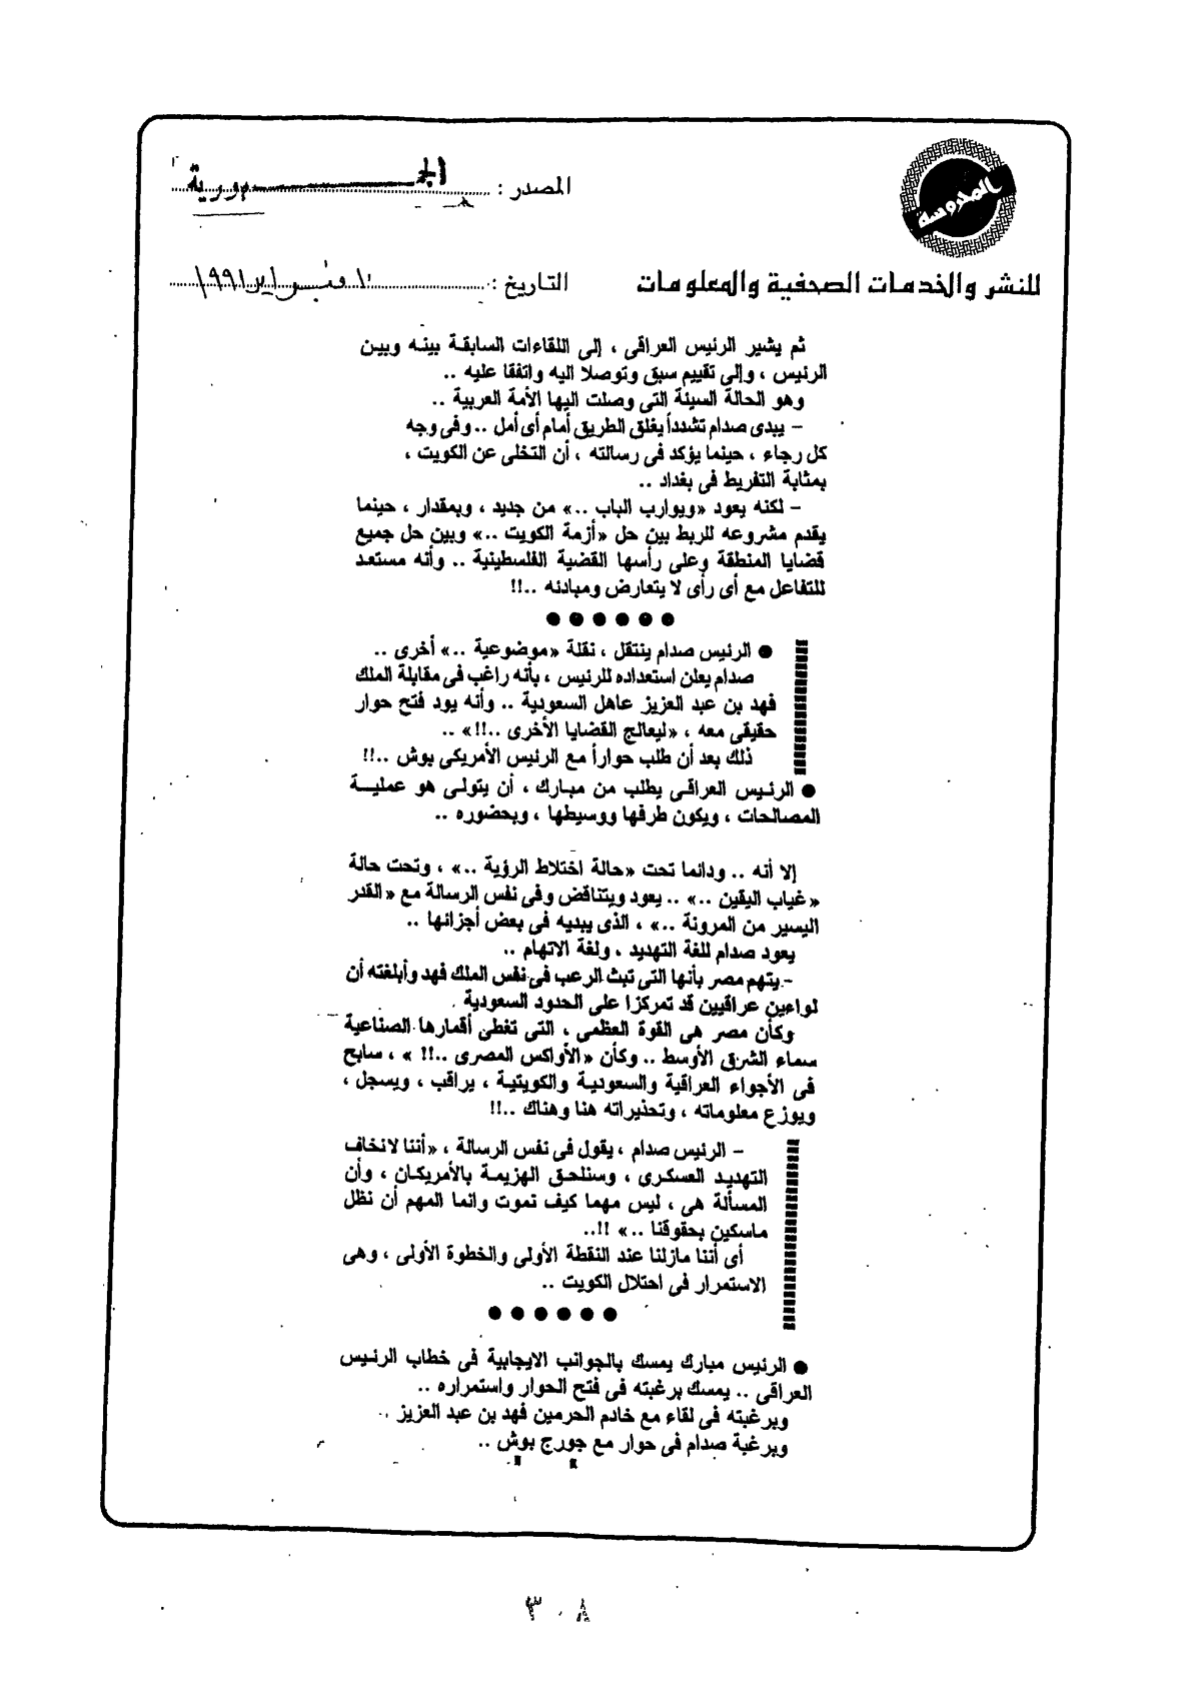 المحروسة
المصدر : الجمهورية
للنشر والخدمات الصحفية والمعلومات
التاريخ : ١٠ فبراير ١٩٩١
ثم يشير الرئيس العراقى ، إلى اللقاءات السابقة بينه وبين
الرئيس ، وإلى تقييم سبق وتوصلا اليه واتفقا عليه ..
وهو الحالة السيئة التى وصلت اليها الأمة العربية ..
– يبدى صدام تشدداً يغلق الطريق أمام أى أمل .. وفى وجه
كل رجاء ، حينما يؤكد فى رسالته ، أن التخلى عن الكويت ،
بمثابة التفريط فى بغداد ..
– لكنه يعود «ويوارب الباب ..» من جديد ، وبمقدار ، حينما
يقدم مشروعه للربط بين حل «أزمة الكويت ..» وبين حل جميع
قضايا المنطقة وعلى رأسها القضية الفلسطينية .. وأنه مستعد
للتفاعل مع أى رأى لا يتعارض ومبادئه ..!!
● ● ● ● ● ●
● الرئيس صدام ينتقل ، نقلة «موضوعية ..» أخرى ..
صدام يعلن استعداده للرئيس ، بأنه راغب فى مقابلة الملك
فهد بن عبد العزيز عاهل السعودية .. وأنه يود فتح حوار
حقيقى معه ، «ليعالج القضايا الأخرى ..!!» ..
ذلك بعد أن طلب حواراً مع الرئيس الأمريكى بوش ..!!
● الرئيس العراقى يطلب من مبارك ، أن يتولى هو عملية
المصالحات ، ويكون طرفها ووسيطها ، وبحضوره ..
إلا أنه .. ودائما تحت «حالة اختلاط الرؤية ..» ، وتحت حالة
«غياب اليقين ..» .. يعود ويتناقض وفى نفس الرسالة مع «القدر
اليسير من المرونة ..» ، الذى يبديه فى بعض أجزائها ..
يعود صدام للغة التهديد ، ولغة الاتهام ..
– يتهم مصر بأنها التى تبث الرعب فى نفس الملك فهد وأبلغته أن
لواءين عراقيين قد تمركزا على الحدود السعودية .
وكأن مصر هى القوة العظمى ، التى تغطى أقمارها الصناعية
سماء الشرق الأوسط .. وكأن «الأواكس المصرى ..!! » ، سابح
فى الأجواء العراقية والسعودية والكويتية ، يراقب ، ويسجل ،
ويوزع معلوماته ، وتحذيراته هنا وهناك ..!!
– الرئيس صدام ، يقول فى نفس الرسالة ، «أننا لانخاف
التهديد العسكرى ، وسنلحق الهزيمة بالأمريكان ، وأن
المسألة هى ، ليس مهما كيف نموت وانما المهم أن نظل
ماسكين بحقوقنا ..» !!..
أى أننا مازلنا عند النقطة الأولى والخطوة الأولى ، وهى
الاستمرار فى احتلال الكويت ..
● ● ● ● ● ●
● الرئيس مبارك يمسك بالجوانب الايجابية فى خطاب الرئيس
العراقى .. يمسك برغبته فى فتح الحوار واستمراره ..
وبرغبته فى لقاء مع خادم الحرمين فهد بن عبد العزيز ..
وبرغبة صدام فى حوار مع جورج بوش ..
٣٠٨